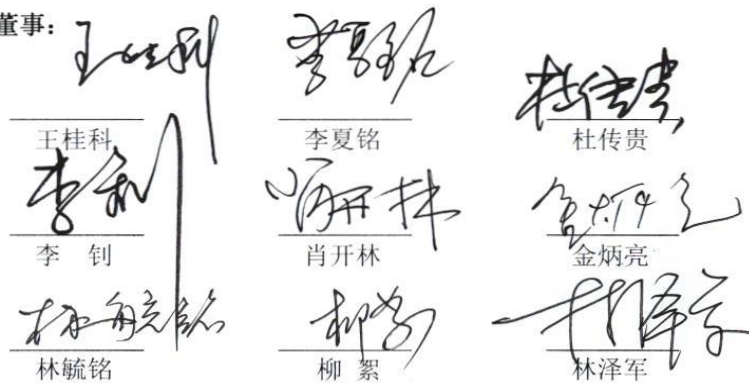 董事：
王桂科 李夏铭 杜传贵
李 钊 肖开林 金炳亮
林毓铭 柳 絮 林泽军